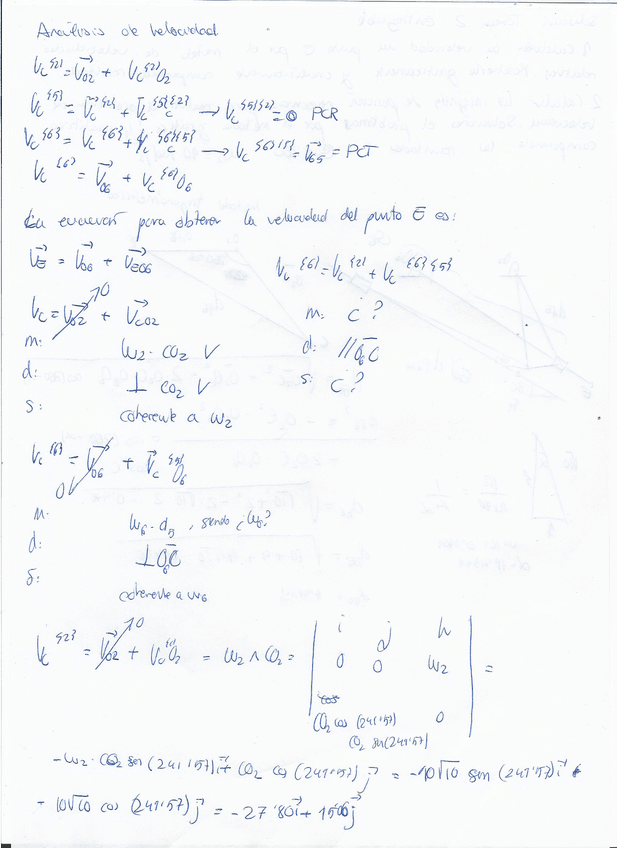 Análisis de velocidad
Vc{2} = VO2 + Vc{2}O2
Vc{5} = Vc{2} + Vc{5}{2} → Vc{5}{2} = 0 PCR
Vc{6} = Vc{6} + Vc{6}{5} → Vc{6}{5} = V65 = PCT
Vc{6} = VO6 + Vc{6}O6
La ecuación para obtener la velocidad del punto E es:
VE = VO6 + VEO6
Vc{6} = Vc{2} + Vc{6}{5}
Vc = VO2 0 + VCO2
m: ¿?
m: ω2 · CO2 V
d: // O6C
d: ⊥ CO2 V
s: ¿?
s: coherente a ω2
= VO6 0 + Vc O6
m: siendo ¿ω6?
d: ⊥ O6C
s: coherente a ω6
Vc{2} = VO2 0 + VcO2 = ω2 ∧ CO2 = | i j k
0 0 ω2 | =
CO2 cos (241'57) 0
CO2 sen (241'57)
-ω2 · CO2 sen (241'57) i + CO2 cos (241'57) j = -10√10 sen (241'57) i
+ 10√10 cos (241'57) j = -27'80 i + 15'06 j